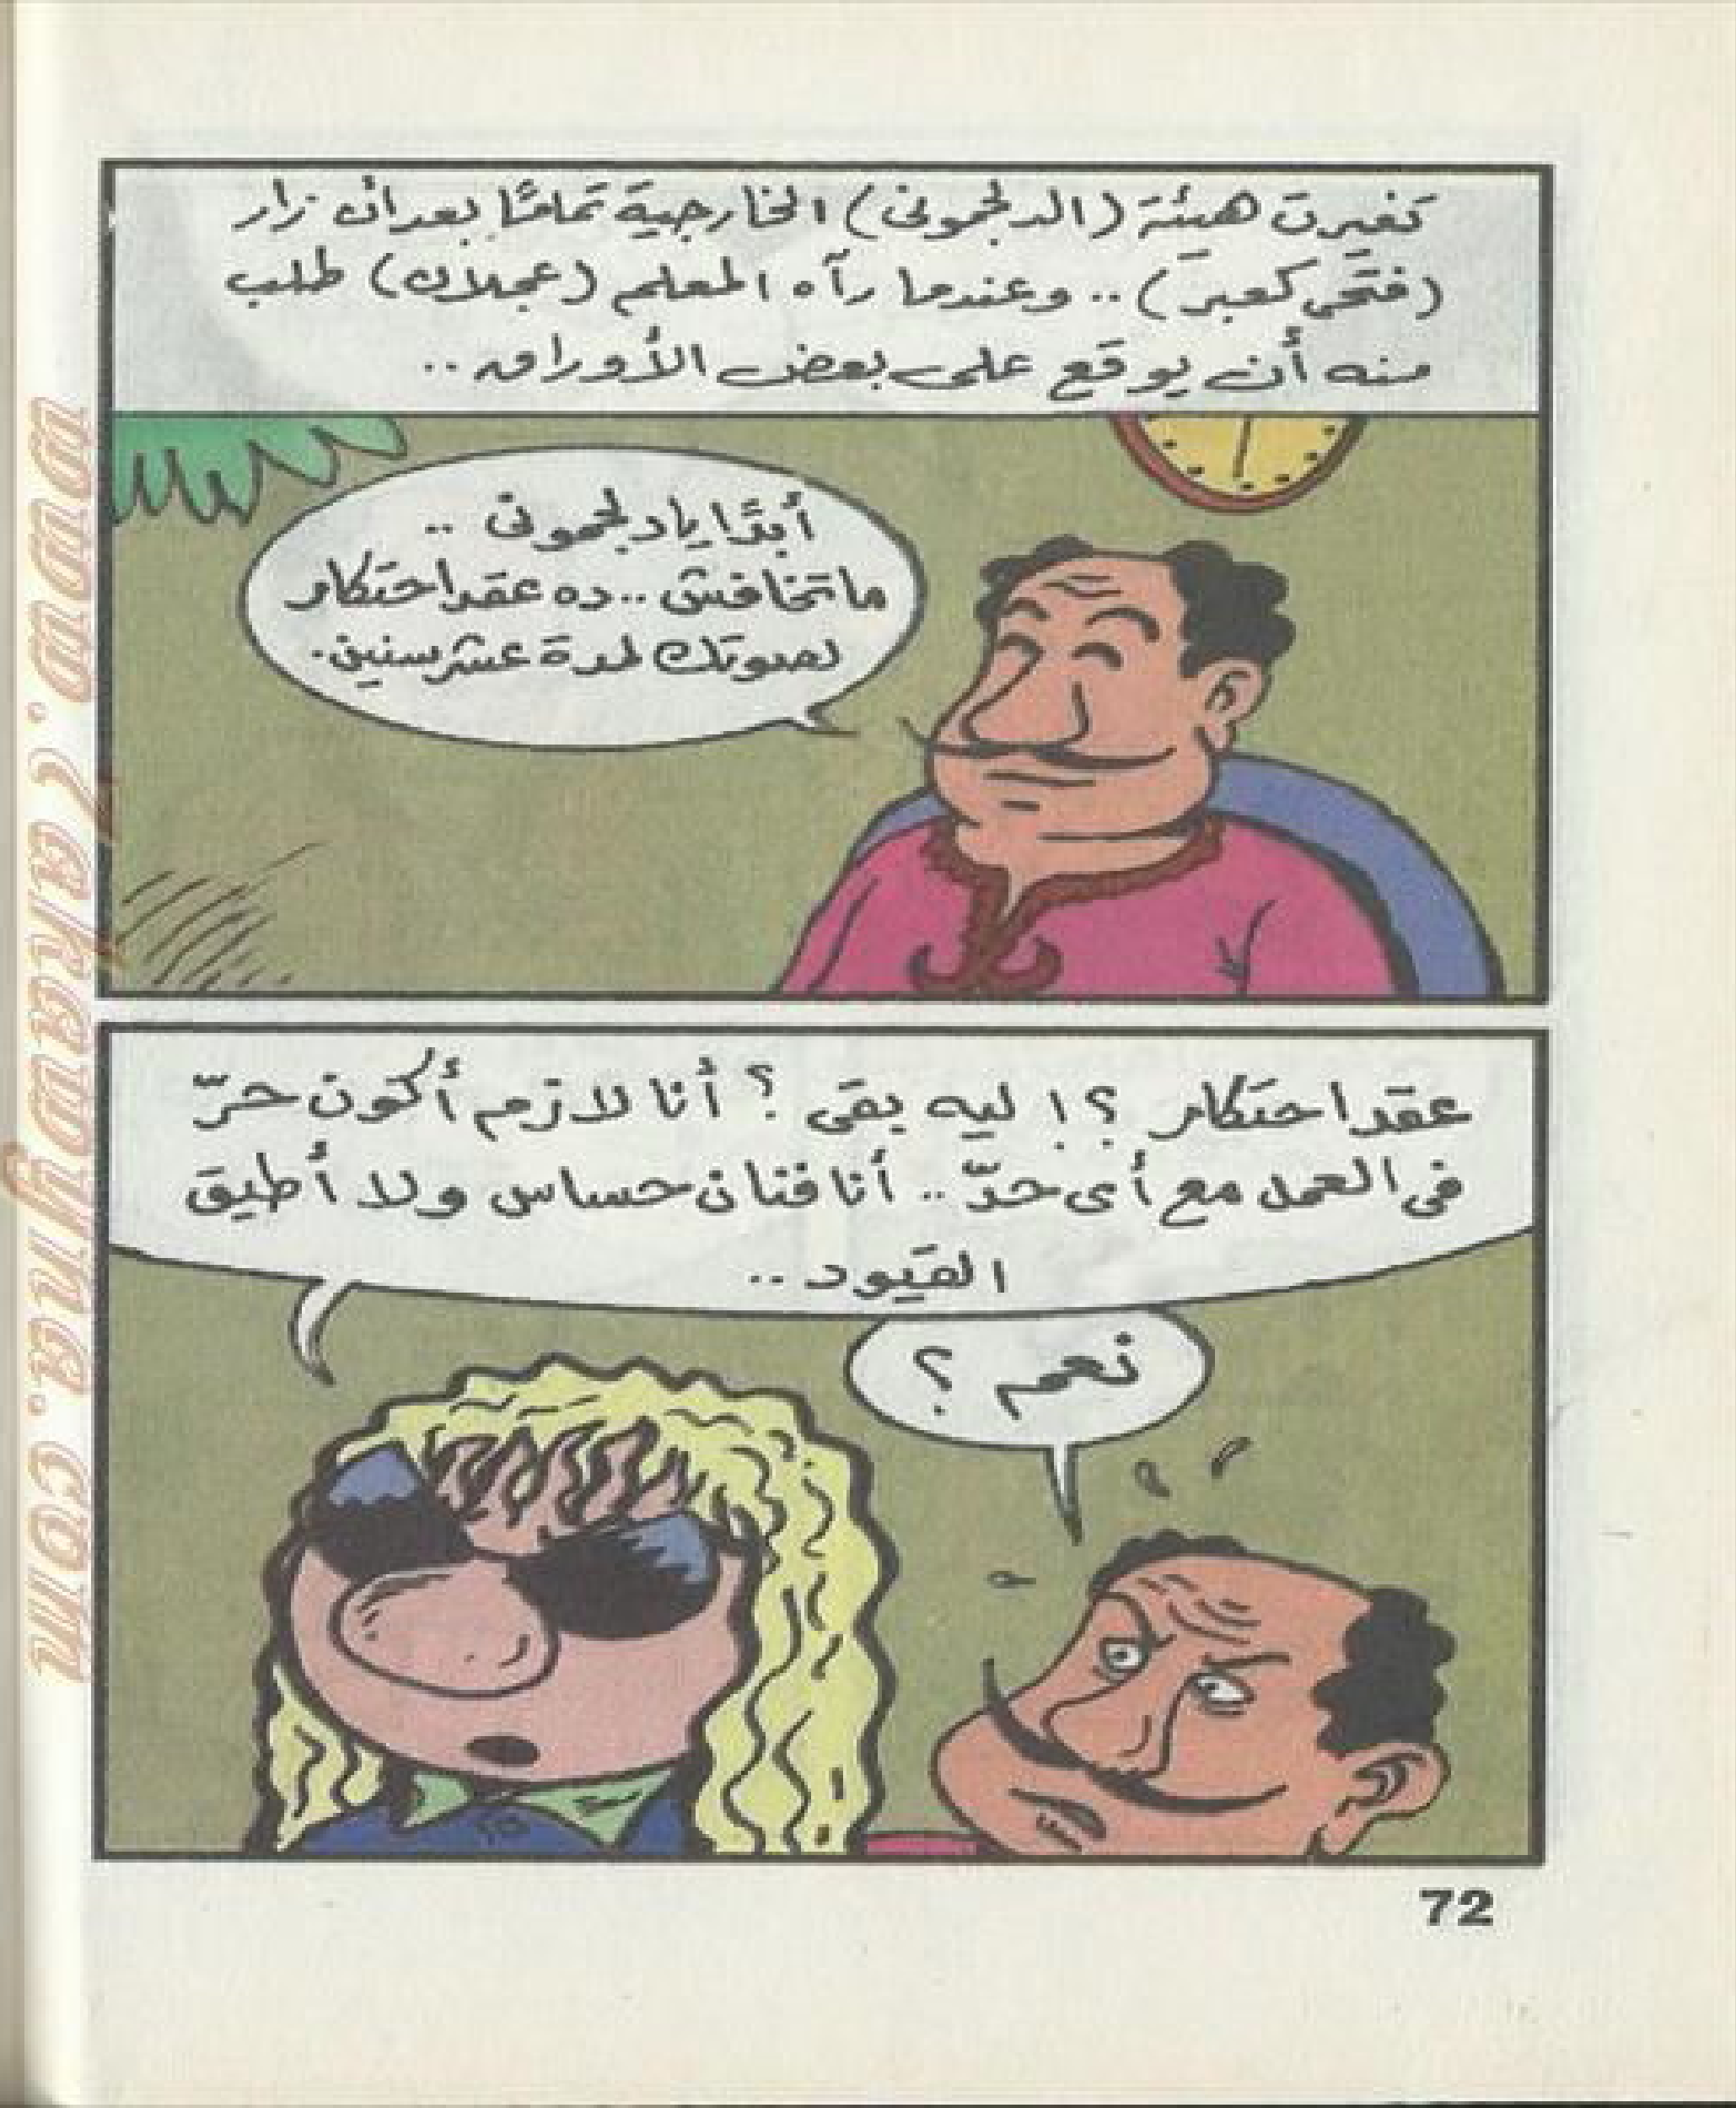 تغيرت هيئة (الدلجمونى) الخارجية تمامًا بعد أن زار
(فتحى كعبر) .. وعندما رآه المعلم (عجلان) طلب
منه أن يوقع على بعض الأوراق ..
أبدًا يا دلجمونى ..
ما تخافش .. ده عقد احتكار
لصوتك لمدة عشر سنين .
عقد احتكار ؟! ليه بقى ؟ أنا لازم أكون حرّ
فى العمل مع أى حدّ .. أنا فنان حساس ولا أطيق
القيود ..
نعم ؟
72